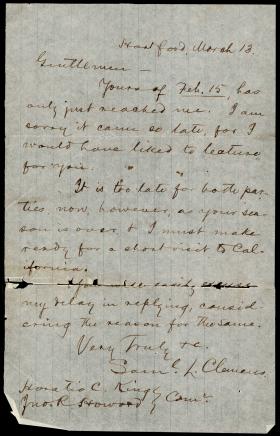 Hartford, March 13.
Gentlemen —
Yours of Feb. 15, has
only just reached me. I am
sorry it came so late, for I
would have liked to lecture
for you.
It is too late for both par-
ties, now, however, as your sea-
son is over, & I must make
ready for a short visit to Cal-
ifornia.
You will easily excuse
my delay in replying, consid-
ering the reason for the same.
Very Truly &c.
Saml. L. Clemens
Horatio C. King
Jno. R. Howard
Com.